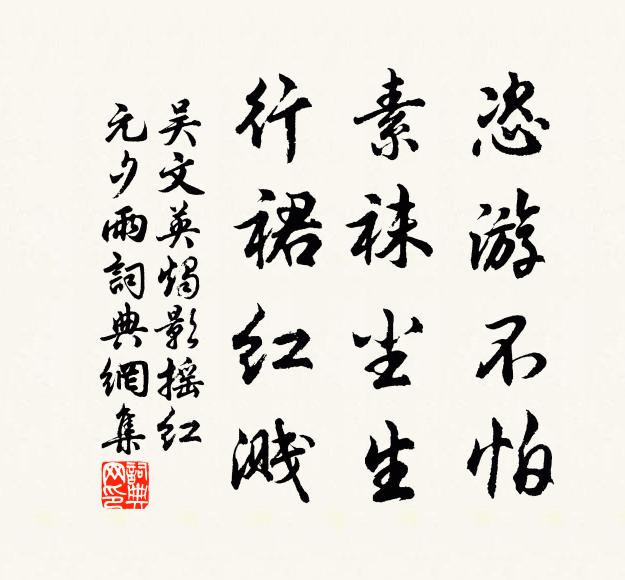 恣游不怕
素袜尘生
行裙红溅
吴文英烛影摇红
元夕雨詞典網集
詞典网印